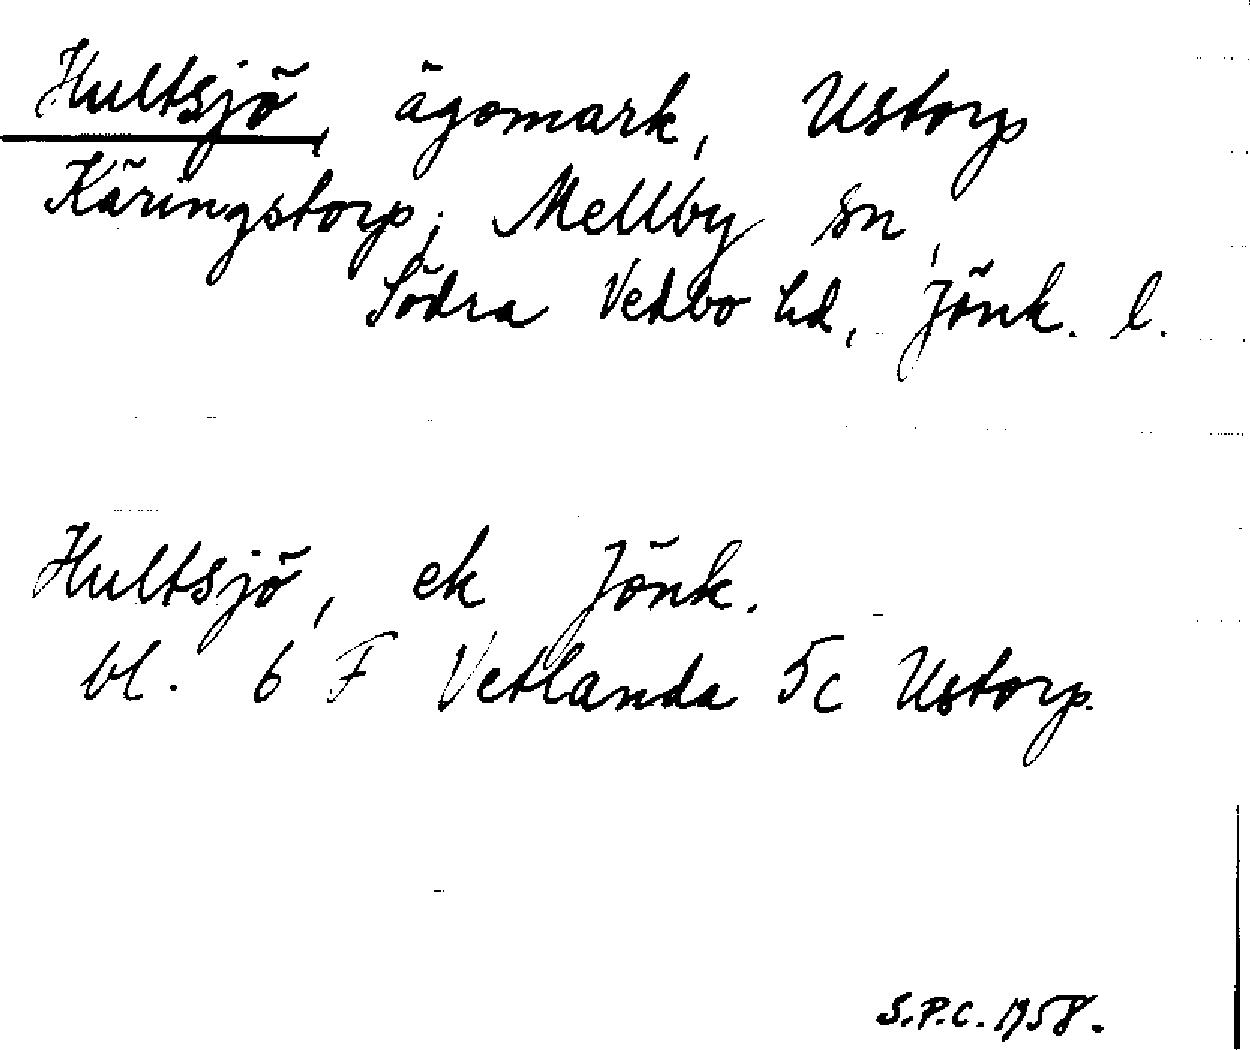 Hultsjö, ägomark, Ustorp
Käringstorp, Mellby sn,
Södra Vedbo hd, Jönk. l.
Hultsjö, ek Jönk.
bl. 6 F Vetlanda 5c Ustorp.
S.P.C. 1958.